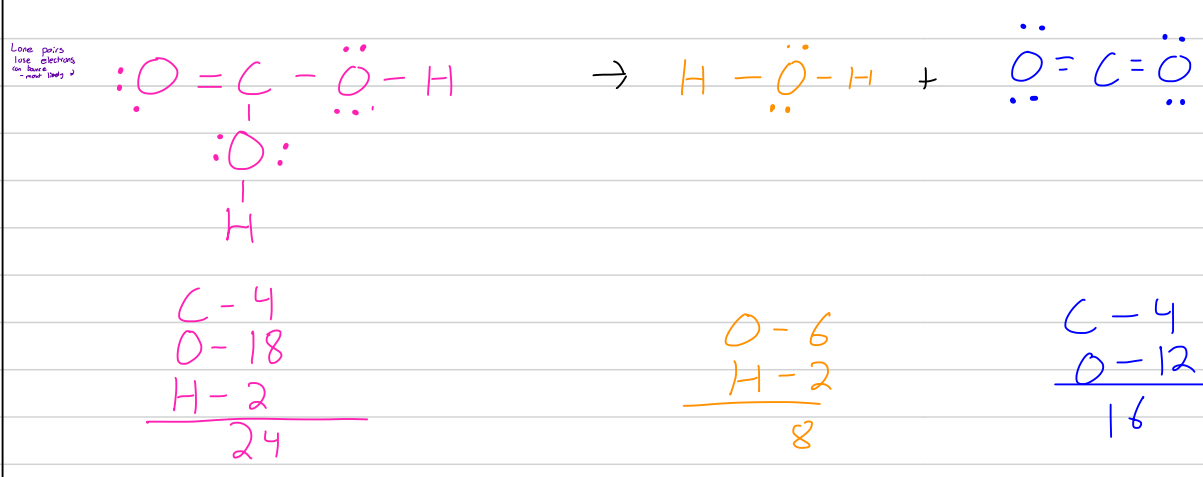 Lone pairs
lose electrons
can leave
- most likely
O = C - O - H → H - O - H + O = C = O
O
H
C - 4
O - 18
H - 2
24
O - 6
H - 2
8
C - 4
O - 12
16